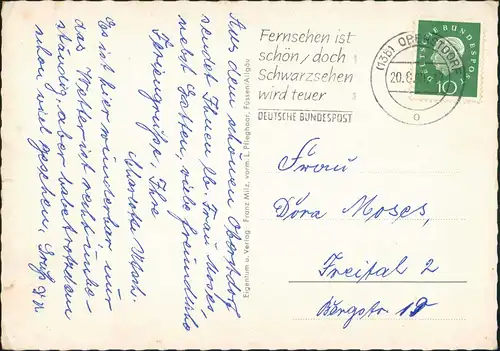 Aus dem schönen Oberstdorf
sendet Ihnen lb. Frau Moses,
nebst Gatten, viele freundliche
Feriengrüße, Ihre
Es ist hier wunderbar nur
das Wetter ist recht unbe-
ständig, aber habe trotzdem
schon viel gesehen, Gruß
Eigentum u. Verlag: Franz Milz, vorm. L. Flieghaar, Füssen/Allgäu
Fernsehen ist
schön, doch
Schwarzsehen
wird teuer
DEUTSCHE BUNDESPOST
(13b) OBERSTDORF
20.8.
o
DEUTSCHE BUNDESPOST
10
Frau
Dora Moses,
Freital 2
Bergstr. 19